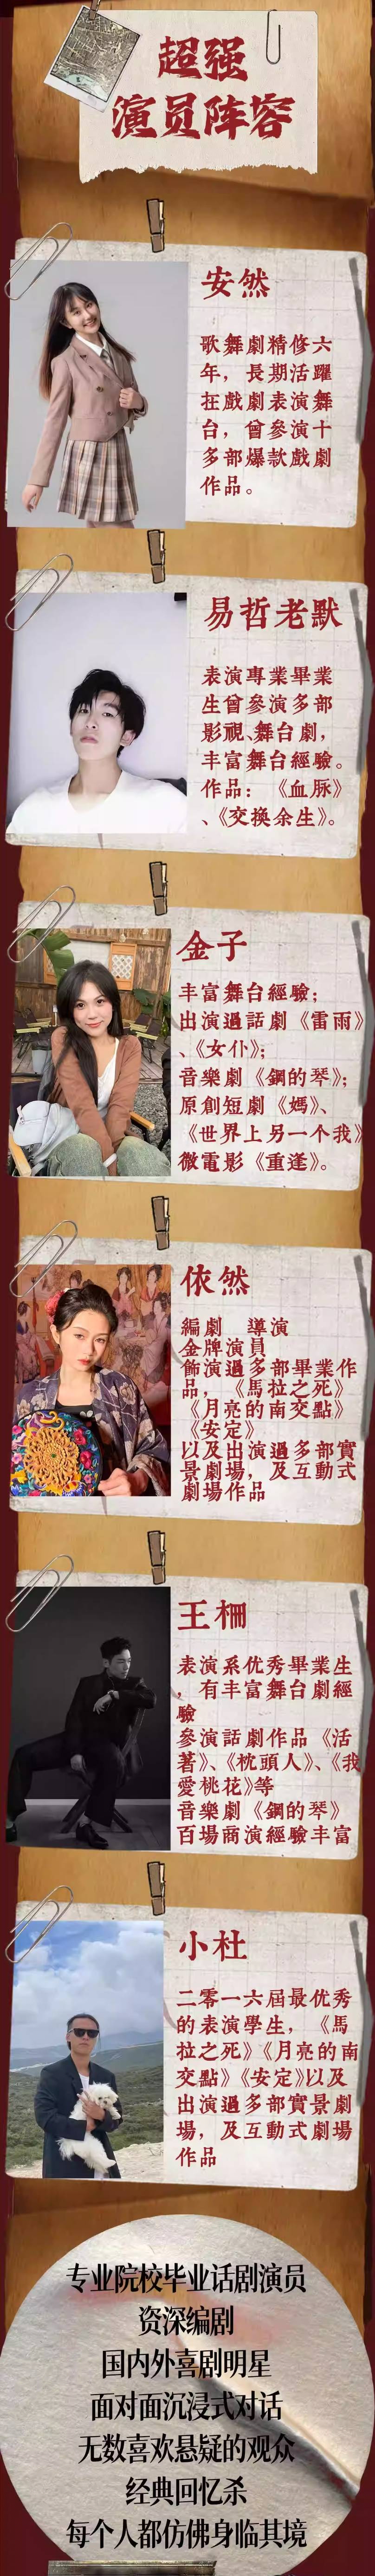 超强
演员阵容
安然
歌舞劇精修六
年，長期活躍
在戲劇表演舞
台，曾參演十
多部爆款戲劇
作品。
易哲老默
表演專業畢業
生曾參演多部
影視、舞台劇，
丰富舞台經驗。
作品：《血豚》
、《交換余生》。
金子
丰富舞台經驗；
出演過話劇《雷雨》
、《女仆》；
音樂劇《鋼的琴》；
原創短劇《媽》、
《世界上另一个我》
微電影《重逢》。
依然
編劇 導演
金牌演員
飾演過多部畢業作
品，《馬拉之死》
《月亮的南交點》
《安定》
以及出演過多部實
景劇場，及互動式
劇場作品
王柵
表演系优秀畢業生
，有丰富舞台劇經
驗
參演話劇作品《活
著》、《枕頭人》、《我
愛桃花》等
音樂劇《鋼的琴》
百場商演經驗丰富
小杜
二零一六屆最优秀
的表演學生，《馬
拉之死》《月亮的南
交點》《安定》以及
出演過多部實景劇
場，及互動式劇場
作品
专业院校毕业话剧演员
资深编剧
国内外喜剧明星
面对面沉浸式对话
无数喜欢悬疑的观众
经典回忆杀
每个人都仿佛身临其境